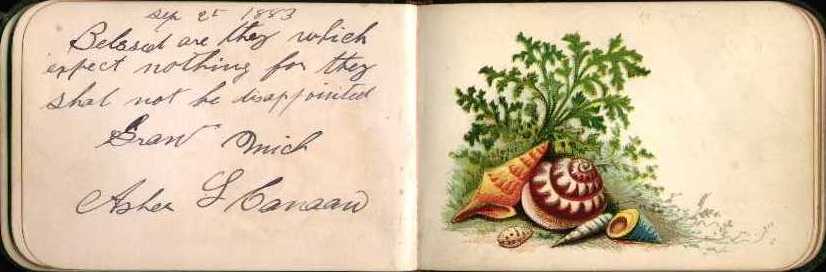 Sep 25 1883
Belssed are they which
expect nothing for they
shal not be disappointed
Grant Mich
Asher L Canaan